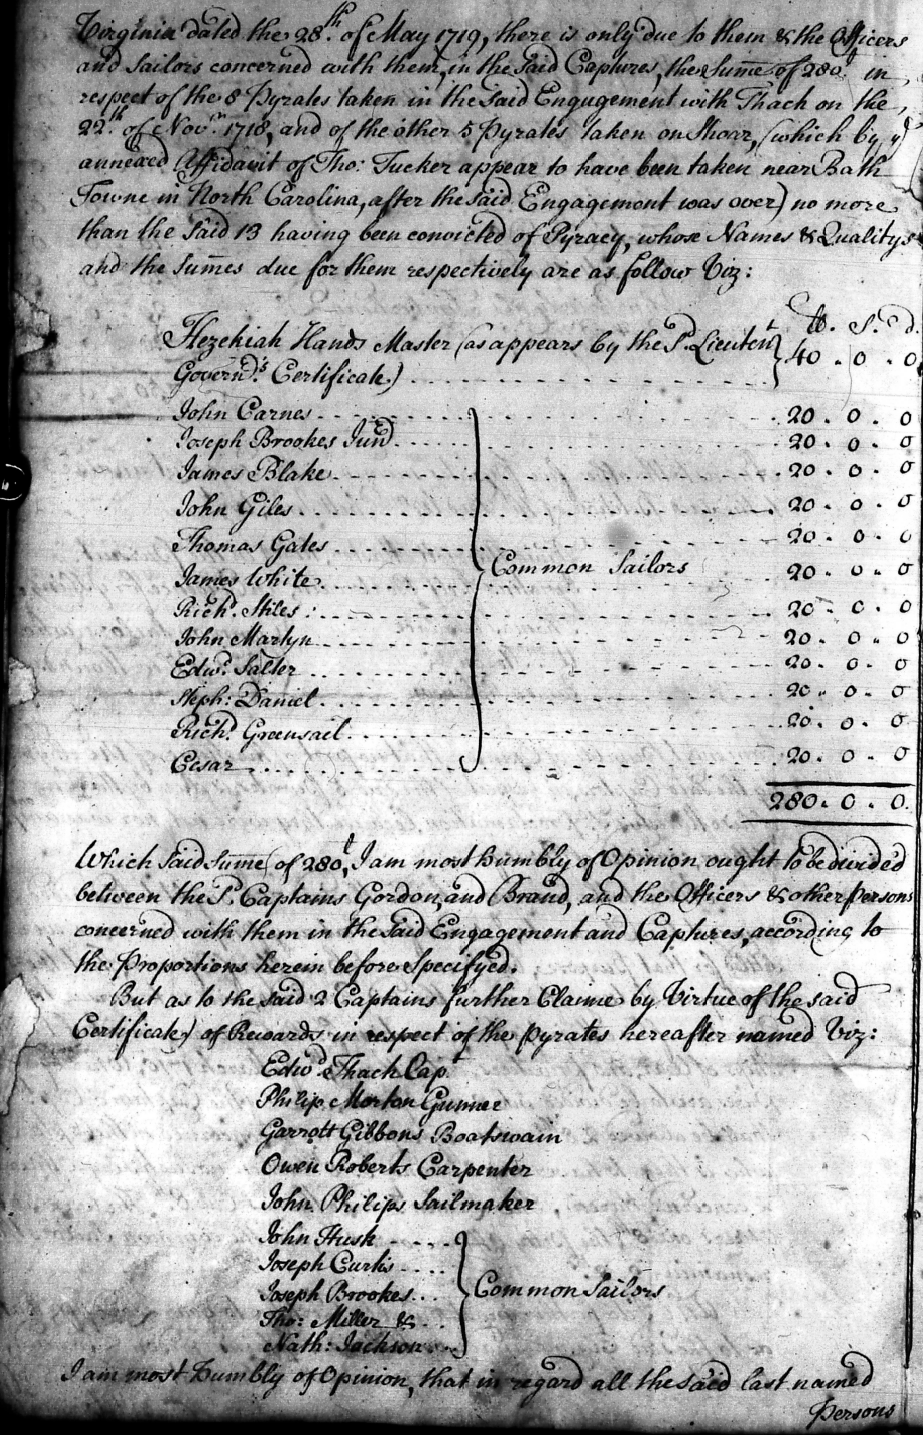 Virginia dated the 28th. of May 1719, there is only due to them & the Officers
and Sailors concerned with them, in the said Captures, the Sume of 280£ in
respect of the 8 Pyrates taken in the said Engagement with Thach on the
22th. of Novr. 1718, and of the other 5 Pyrates taken on Shoar, (which by ye
annexed Affidavit of Tho: Tucker appear to have been taken near Bath
Towne in North Carolina, after the said Engagement was over) no more
than the said 13 having been convicted of Pyracy, whose Names & Qualitys
and the Sumes due for them respectively are as follow Viz:
lb. S. d.
Hezekiah Hands Master (as appears by the Sd. Lieutent
Governd's Certificate) } 40 . 0 . 0
John Carnes 20 . 0 . 0
Joseph Brookes Junr. 20 . 0 . 0
James Blake 20 . 0 . 0
John Giles 20 . 0 . 0
Thomas Gates 20 . 0 . 0
Common Sailors
James White 20 . 0 . 0
Richd. Stiles : 20 . 0 . 0
John Martyn 20 . 0 . 0
Edwd. Salter 20 . 0 . 0
Steph: Daniel 20 . 0 . 0
Richd. Greensail 20 . 0 . 0
Cesar 20 . 0 . 0
280 . 0 . 0.
Which said Sume of 280£, I am most humbly of Opinion ought to be divided
between the Sd. Captains Gordon, and Brand, and the Officers & other Persons
concerned with them in the said Engagement and Captures, according to
the Proportions herein before Specifyed.
But as to the said 2 Captains further Claime by Virtue of the said
Certificate) of Rewards in respect of the Pyrates hereafter named Viz:
Edwd. Thach Capt.
Philip Morton Gunner
Garrott Gibbons Boatswain
Owen Roberts Carpenter
John Philips Sailmaker
John Husk
Joseph Curtis
Joseph Brookes Common Sailors
Tho: Miller &
Nath: Jackson
I am most humbly of Opinion, that in regard all the said last named
Persons